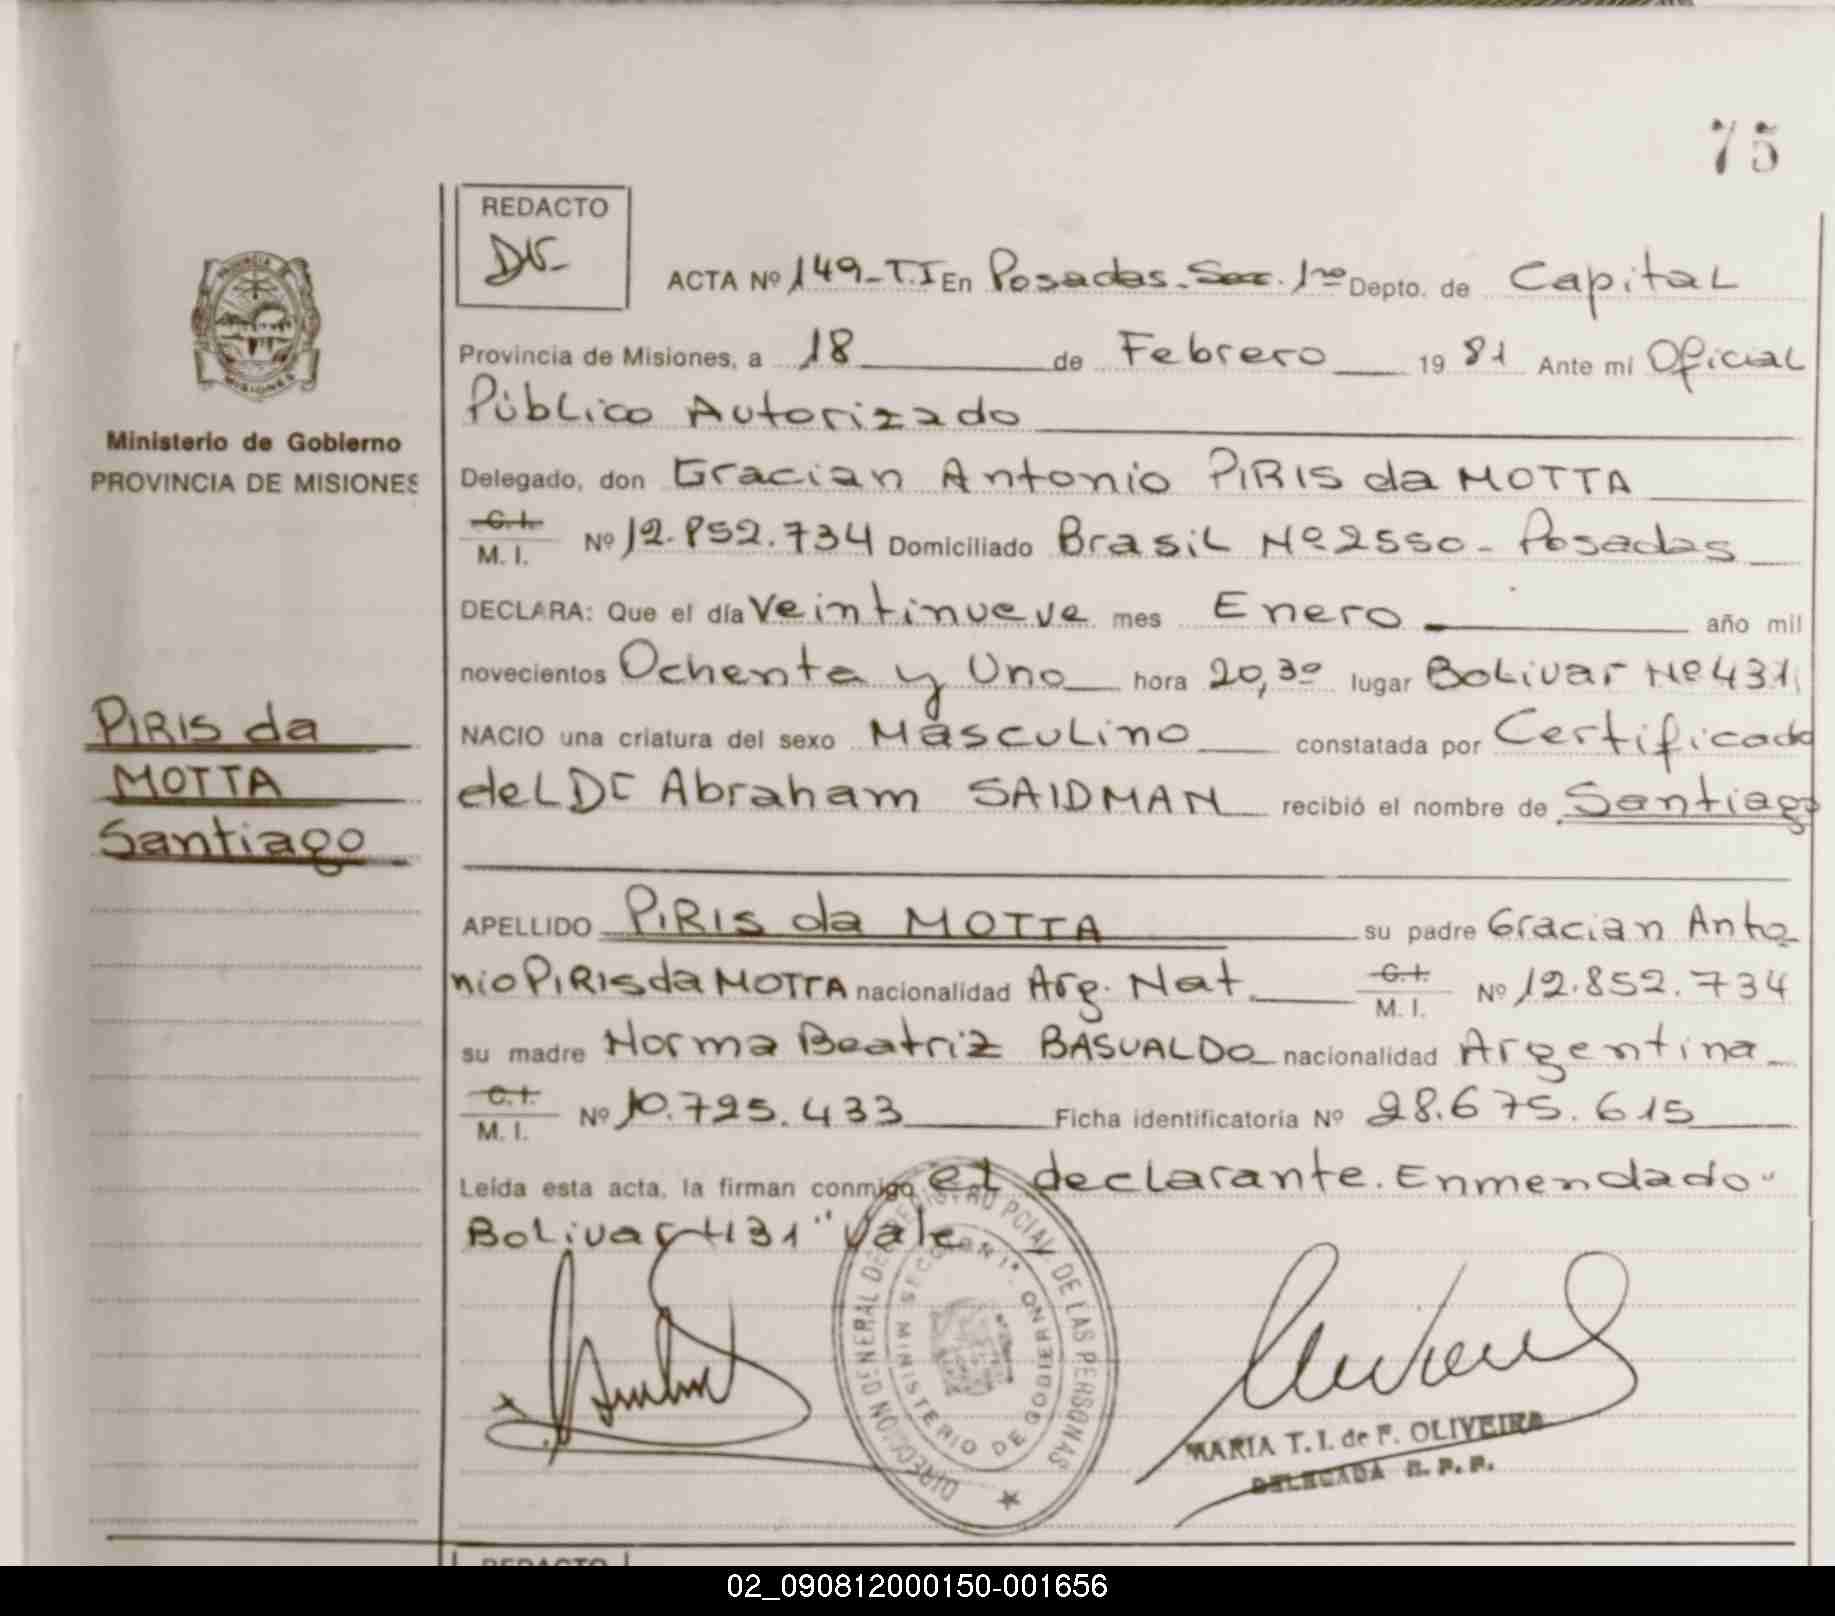 75
REDACTO
ACTA Nº 149-T.I En Posadas. Sec. 1ra Depto. de Capital
Provincia de Misiones, a 18 de Febrero 19 81 Ante mí Oficial
Público Autorizado
Delegado, don Gracian Antonio PIRIS da MOTTA
C. I.
M. I. Nº 12.852.734 Domiciliado Brasil Nº 2550 - Posadas
DECLARA: Que el día Veintinueve mes Enero año mil
novecientos Ochenta y Uno hora 20,30 lugar Bolivar Nº 431
NACIO una criatura del sexo Masculino constatada por Certificado
del Dr Abraham SAIDMAN recibió el nombre de Santiago
APELLIDO PIRIS da MOTTA su padre Gracian Anto
nio PIRIS da MOTTA nacionalidad Arg. Nat. C. I. M. I. Nº 12.852.734
su madre Norma Beatriz BASUALDO nacionalidad Argentina
C. I.
M. I. Nº 10.795.433 Ficha identificatoria Nº 28.675.615
Leída esta acta, la firman conmigo el declarante. Enmendado "
Bolivar 431" Vale
PROVINCIA DE
MISIONES
Ministerio de Gobierno
PROVINCIA DE MISIONES
PIRIS da
MOTTA
Santiago
DIRECCION GENERAL DEL REGISTRO PCIAL. DE LAS PERSONAS
SECCION 1ª
MINISTERIO DE GOBIERNO
MARIA T. I. de F. OLIVEIRA
DELEGADA R. P. P.
REDACTO
02_090812000150-001656